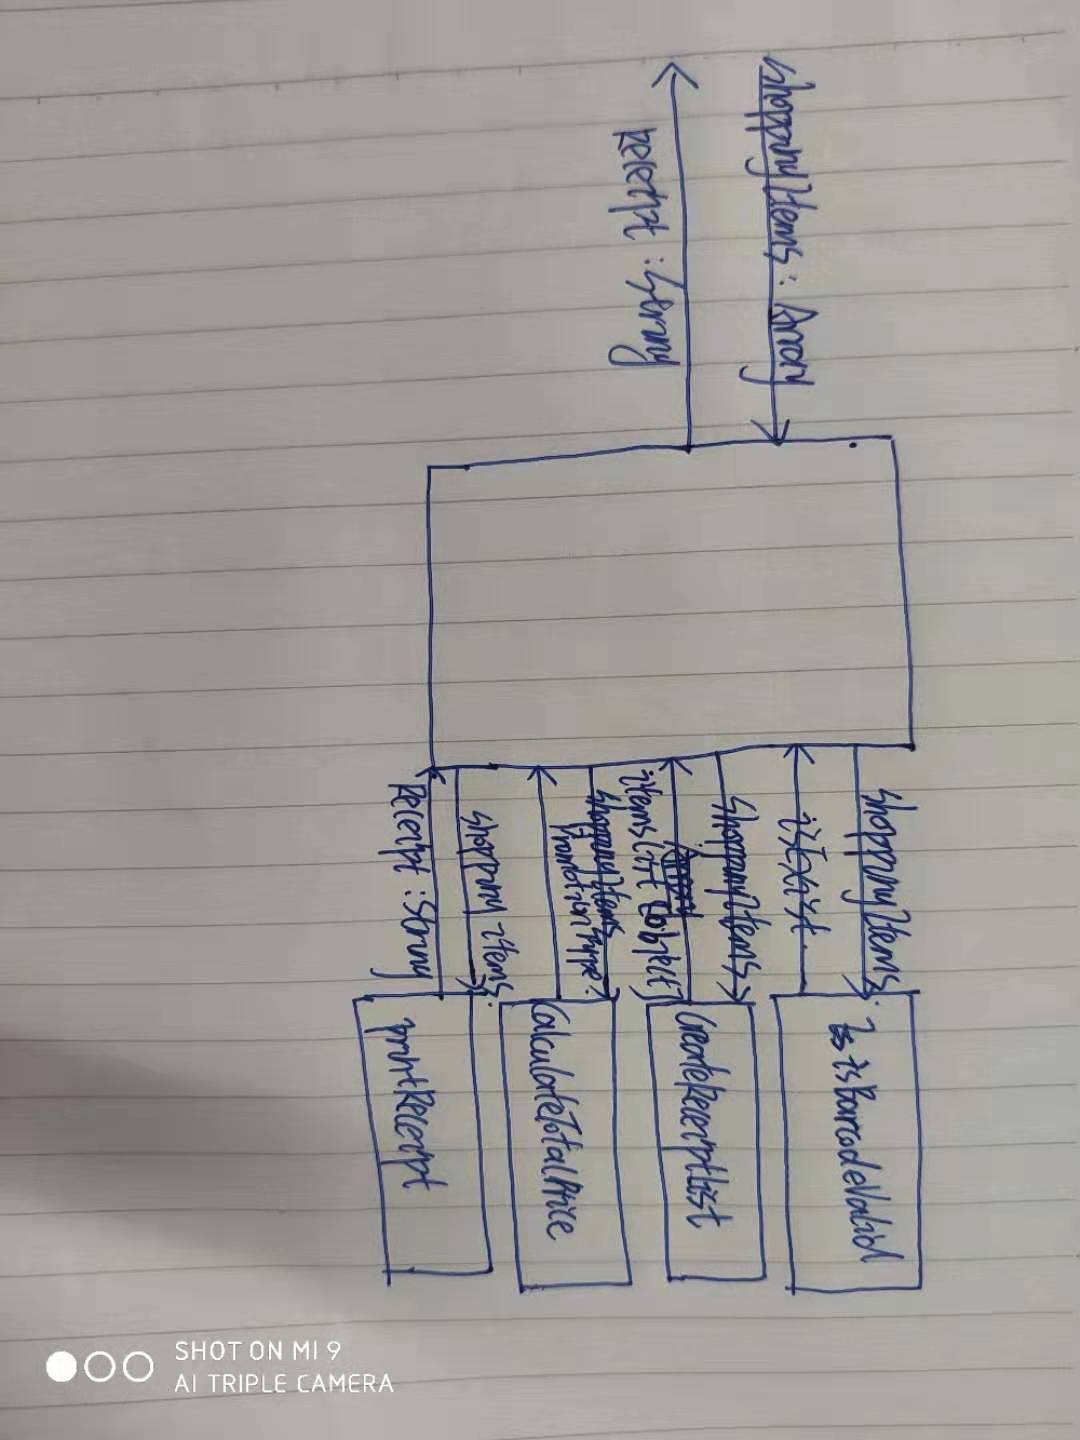 shoppingItems: Array
Receipt : String
shoppingItems:
isExist
isBarcodeValid
shoppingItems
itemsList Cobject
CreateReceiptList
shoppingItems
PromotionType?
CalculateTotalPrice
shopping items:
Receipt : String
printReceipt
SHOT ON MI 9
AI TRIPLE CAMERA